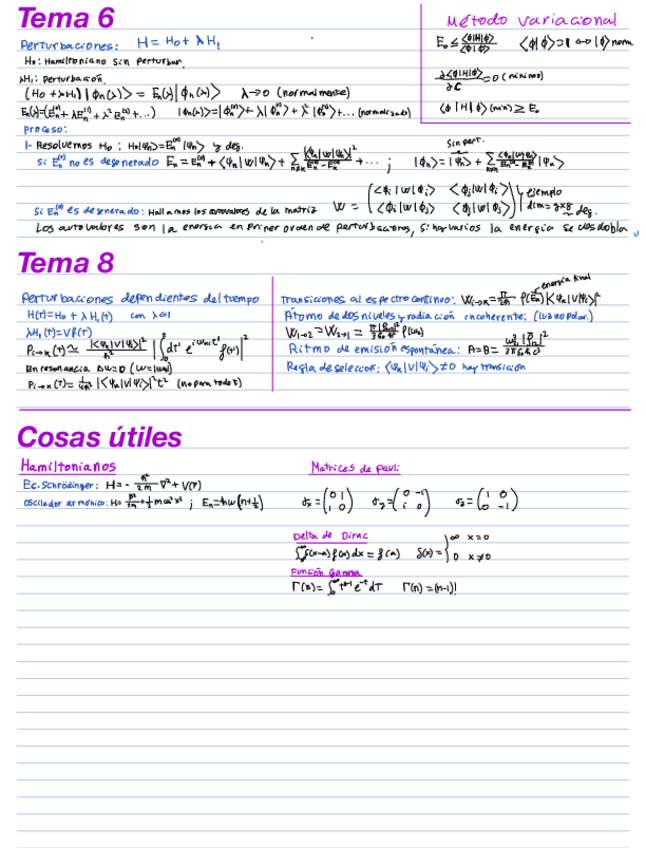 Tema 6
Perturbaciones: H = H₀ + λH₁
H₀: Hamiltoniano sin perturbar.
λH₁: perturbación.
(H₀ + λH₁)|ϕₙ(λ)> = Eₙ(λ)|ϕₙ(λ)> λ→0 (normalmente)
Eₙ(λ)=(Eₙ⁽⁰⁾ + λEₙ⁽¹⁾ + λ²Eₙ⁽²⁾ + ...) |ϕₙ(λ)> = |ϕₙ⁽⁰⁾> + λ|ϕₙ⁽¹⁾> + λ²|ϕₙ⁽²⁾> + ... (normalizados)
Proceso:
1- Resolvemos H₀: H₀|ψₙ> = Eₙ⁽⁰⁾|ψₙ> y deg.
Sin pert.
Si Eₙ⁽⁰⁾ no es degenerado Eₙ = Eₙ⁽⁰⁾ + <ψₙ|W|ψₙ> + ... ; |ϕₙ> = |ψₙ> +
Si Eₙ⁽⁰⁾ es degenerado: Hallamos los autovalores de la matriz W = (<ϕᵢ|W|ϕᵢ> <ϕⱼ|W|ϕᵢ>
<ϕᵢ|W|ϕⱼ> <ϕⱼ|W|ϕⱼ>) ejemplo
dim = g×g
deg.
Los autovalores son la energía en primer orden de perturbaciones, si hay varios la energía se desdobla
Método variacional
E₀ ≤ <ϕ|H|ϕ>/<ϕ|ϕ> <ϕ|ϕ>=1 ↔ |ϕ> norm
∂<ϕ|H|ϕ>/∂C = 0 (mínimo)
<ϕ|H|ϕ>(min) ≥ E₀
Tema 8
Perturbaciones dependientes del tiempo
H(t) = H₀ + λH₁(t) con λ<<1
λH₁(t) = Vf(t)
Pᵢ→ₖ(t) ≃ |<ψₖ|V|ψᵢ>|²/ħ² |∫₀ᵗ dt' e^{iωₖᵢt'} f(t')|²
En resonancia Δω=0 (ω=|ωₖᵢ|)
Pᵢ→ₖ(t) = |<ψₖ|V|ψᵢ>|² t² (no para todo t)
energía final
Transiciones al espectro continuo: Wᵢ→ₖ = ρ(Eₙ)|<ψₖ|V|ψᵢ>|²
Átomo de dos niveles y radiación incoherente: (luz no polar.)
W₁→₂ = W₂→₁ = ρ(ω₀)
Ritmo de emisión espontánea: A=B=
Regla de selección: <ψₖ|V|ψᵢ> ≠ 0 hay transición
Cosas útiles
Hamiltonianos
Ec. Schrödinger: H = - ħ²/2m ∇² + V(r⃗)
oscilador armónico: H = + ½mω²x² ; Eₙ = ħω(n+½)
Matrices de Pauli:
σₓ = (0 1
1 0) σᵧ = (0 -i
i 0) σ_z = (1 0
0 -1)
Delta de Dirac
∫δ(x-a)f(x)dx = f(a) δ(x) = {∞ x=0
0 x≠0
Función Gamma
Γ(z) = ∫₀^∞ t^{z-1} e^{-t} dt Γ(n) = (n-1)!